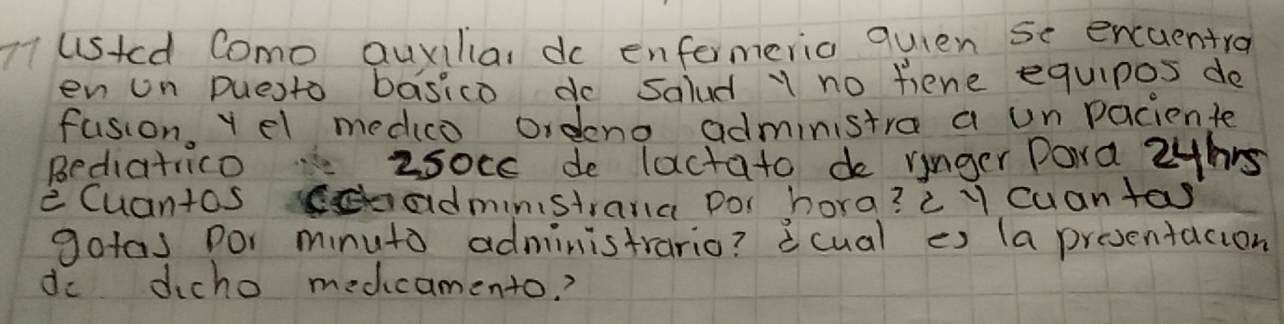 77 Usted Como auxiliar de enfermeria quien se encuentra
en un puesto básico de Salud Y no tiene equipos de
fusion. Y el medico ordeno administra a un paciente
Pediatrico 250cc de lactato de ringer para 24hrs
¿Cuantos administraria por hora? ¿Y cuantas
gotas por minuto administrario? ¿cual es la presentacion
de dicho medicamento.?